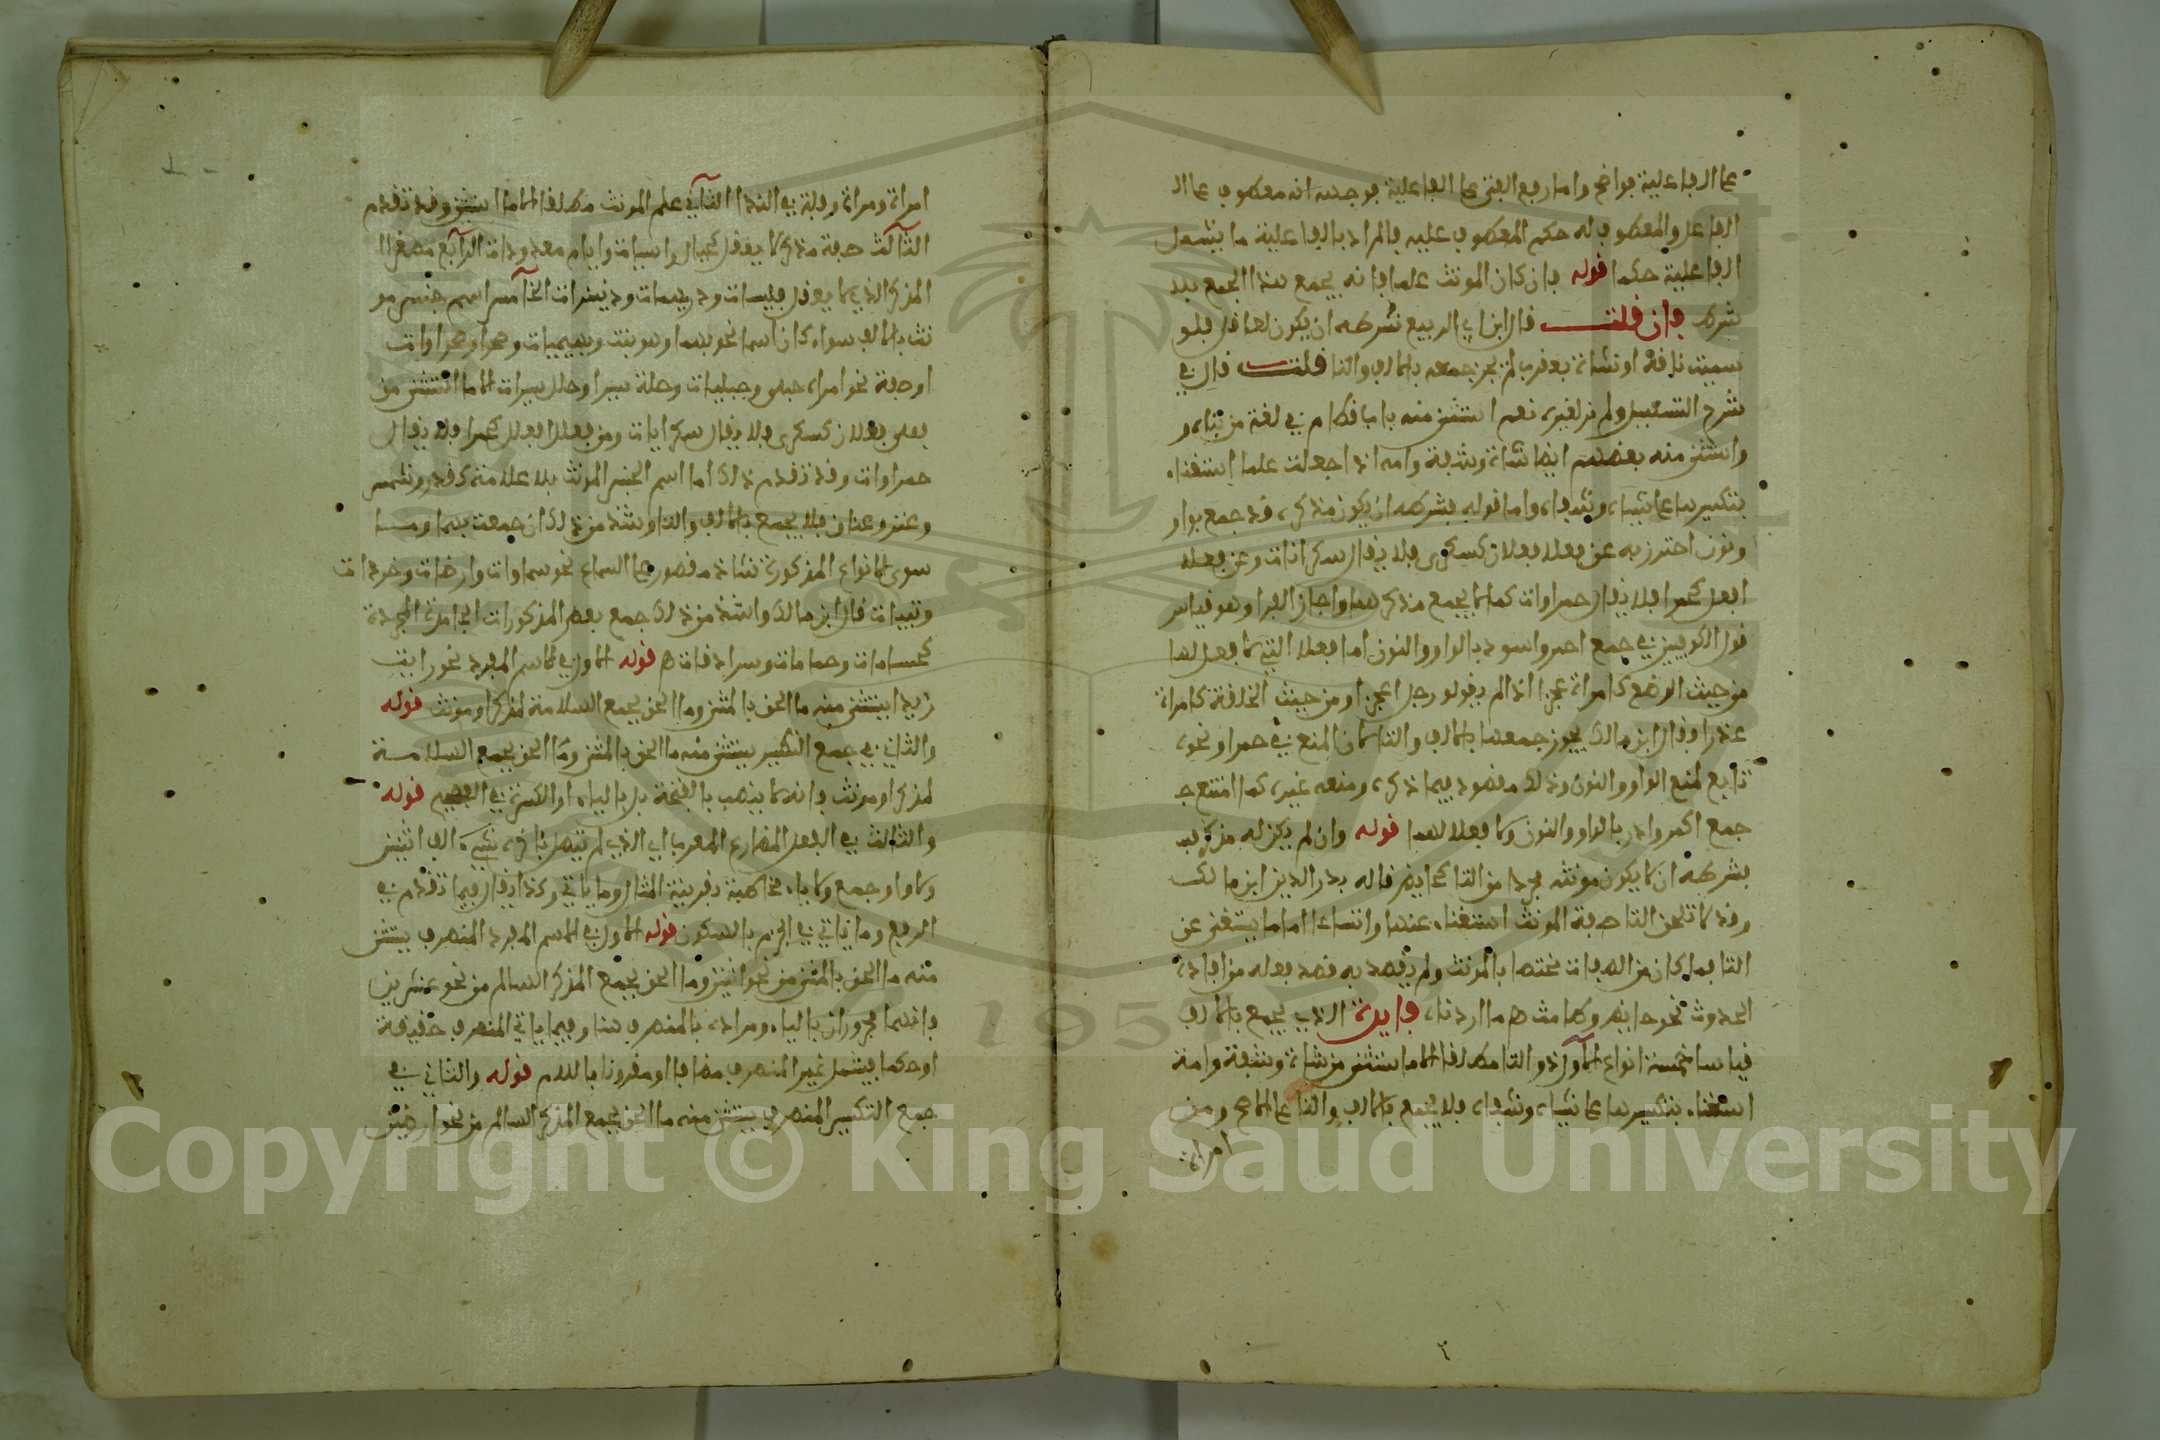 على الفاعلية فواضح واما رفع الفتى على الفاعلية فوجهه انه معطوف على ال
الفاعل والمعطوف له حكم المعطوف عليه فالمراد بالفاعلية ما يشمل
الفاعلية حكما قوله فان كان المونث علما فانه يجمع هذا الجمع بلا
شرط فان قلت قال ابن ابي الربيع شرطه ان يكون لعاقل فلو
سميت ناقة او شاة بعقرب لم يجز جمعه بالالف والتا قلت قال في
شرح التسهيل ولم نر لغيره نعم استثنى منه باب قطام في لغة من بناه و
واستثنى منه بعضهم ايضا شاة وشفة وامة اذا جعلت علما استغناء
بتكسيرها على شياه وشفاه واما قوله بشرطه ان يكون مذكره قد جمع بواو
ونون احترز به عن فعلا فعلان كسكرى فلا يقال سكرانات وعن فعلا
افعل كحمرا فلا يقال حمراوات كما لا يجمع مذكرهما واجاز الفرا وهو قياس
قول الكوفيين في جمع احمر واسود بالواو والنون اما فعلا التي لا افعل لها
من حيث الوضع كامراة عجزا اذا لم يقولو رجل اعجز او من حيث الخلقة كامراة
عذرا فقال ابن مالك يجوز جمعها بالالف والتا لان المنع في حمرا ونحوه
تابع لمنع الواو والنون وذلك مفقود فيما ذكره ومنعه غيره كما امتنع
جمع اكمر وادر بالواو والنون ولا فعلا لهما قوله وان لم يكن له مذكر
بشرطه ان لا يكون مونثه مجردا من التا كحايض قاله بدر الدين ابن مالك
وقد لا تلحق التا صفة المونث استغناء عنها واتساعا اما ما يستغنى عن
التا فما كان من الصفات مختصا بالمونث ولم يقصد به قصد فعله من افادة
الحدوث نحو حايض وطامث هـ ما اردناه فايدة الذي يجمع بالالف
قياسا خمسة انواع الاول ذو التا مطلقا الا ما استثنى من شاة وشفة وامة
استغناء بتكسيرها على شياه وشفاه فلا يجمع بالالف والتا على الاصح ومن
امراة
امراة ومراة وقلة في الندا الثاني علم المونث مطلقا الا ما استثنى وقد تقدم
الثالث صفة مذكر لا يعقل كجبال راسيات وايام معدودات الرابع مصغر ال
المذكر الذي لا يعقل فليسات ودريهمات ودنينرات الخامس اسم جنس مو
نث بالالف سواء كان اسما نحو بهما وبهمات وصحرا وصحراوات
او صفة نحو امراة حبلى وحبليات وحلة سيرا وحلل سيرات الا ما استثنى من
فعلى فعلان كسكرى فلا يقال سكرايات ومن فعلا افعل كحمرا فلا يقال
حمراوات وقد تقدم ذلك اما اسم الجنس المونث بلا علامة كقدر وشمس
وعنز وعناق فلا يجمع بالالف والتا وشذ من ذلك ان جمعت سما
سوى الانواع المذكورة شاذ مقصور على السماع نحو سماوات وارضات
وثيبات قال ابن مالك واشذ من ذلك جمع بعض المذكورات الجامدة المجردة
كحسامات وحمامات وسرادقات هـ قوله الاول في الاسم المفرد نحو رايت
زيدا يستثنى منه ما الحق بالمثنى وما الحق بجمع السلامة لمذكر او مونث قوله
والثاني في جمع التكسير يستثنى منه ما الحق بالمثنى وما الحق بجمع السلامة
لمذكر او مونث فانه لا ينصب بالفتحة بل بالياء او الكسرة في الفصيح قوله
والثالث في الفعل المضارع المعرب اي الذي لم يتصل باخره شيء الف اثنين
ولا واو جمع ولا ياء مخاطبة بقرينة المثال وما ياتي وكذا يقال فيما تقدم في
الرفع وما ياتي في الجزم بالسكون قوله الاول في الاسم المفرد المنصرف يستثنى
منه ما الحق بالمثنى من نحو اثنين وما الحق بجمع المذكر السالم من نحو عشرين
فانهما مجروران بالياء ومراده بالمنصرف هنا وفيما ياتي المنصرف حقيقة
او حكما يشمل غير المنصرف مضافا او مقرونا باللام قوله والثاني في
جمع التكسير المنصرف يستثنى منه ما الحق بجمع المذكر السالم من نحو ارضين
٢
1957
Copyright © King Saud University